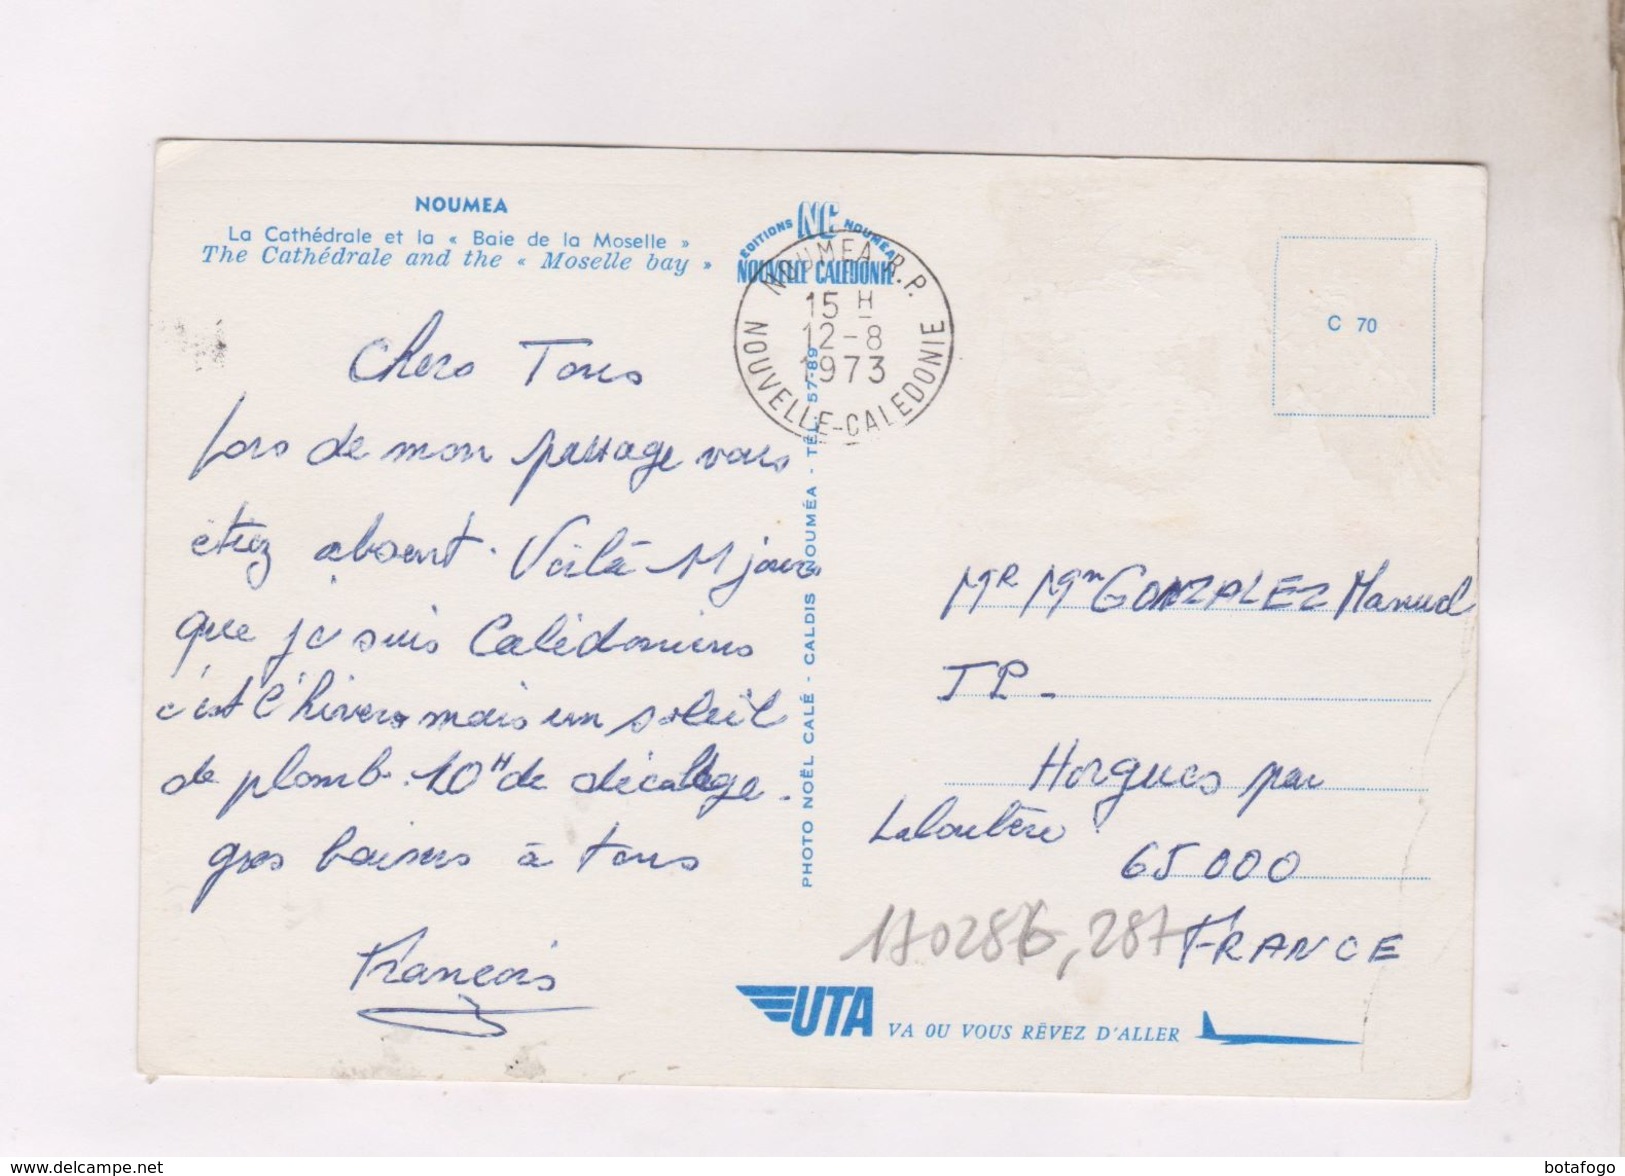 NOUMEA
La Cathédrale et la « Baie de la Moselle »
The Cathédrale and the « Moselle bay »
EDITIONS NC NOUMEA
NOUVELLE CALEDONIE
NOUMEA R.P.
15 H
12-8
1973
NOUVELLE-CALEDONIE
C 70
Chers Tous
Lors de mon passage vous
étiez absent. Voilà 11 jours
que je suis Calédoniens
c'est l'hivers mais un soleil
de plomb. 10H de décalage.
gros baisers à tous
François
PHOTO NOËL CALÉ - CALDIS NOUMÉA - TÉL. 57-89
Mr Mm GONZALEZ Manuel
Horgues par
Laloubère
65000
FRANCE
170286, 287
UTA VA OU VOUS RÊVEZ D'ALLER
botafogo
www.delcampe.net